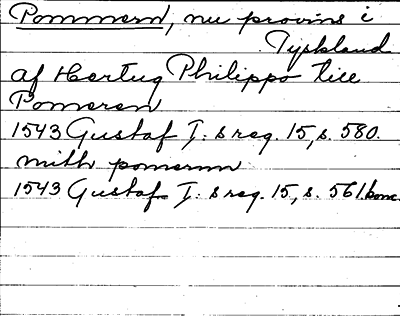 Pommern, nu provins i
Tyskland
af Hertug Philippo till
Pomeren
1543 Gustaf I:s reg. 15, s. 580.
mith pomernn
1543 Gustaf I:s reg. 15, s. 561 konc.